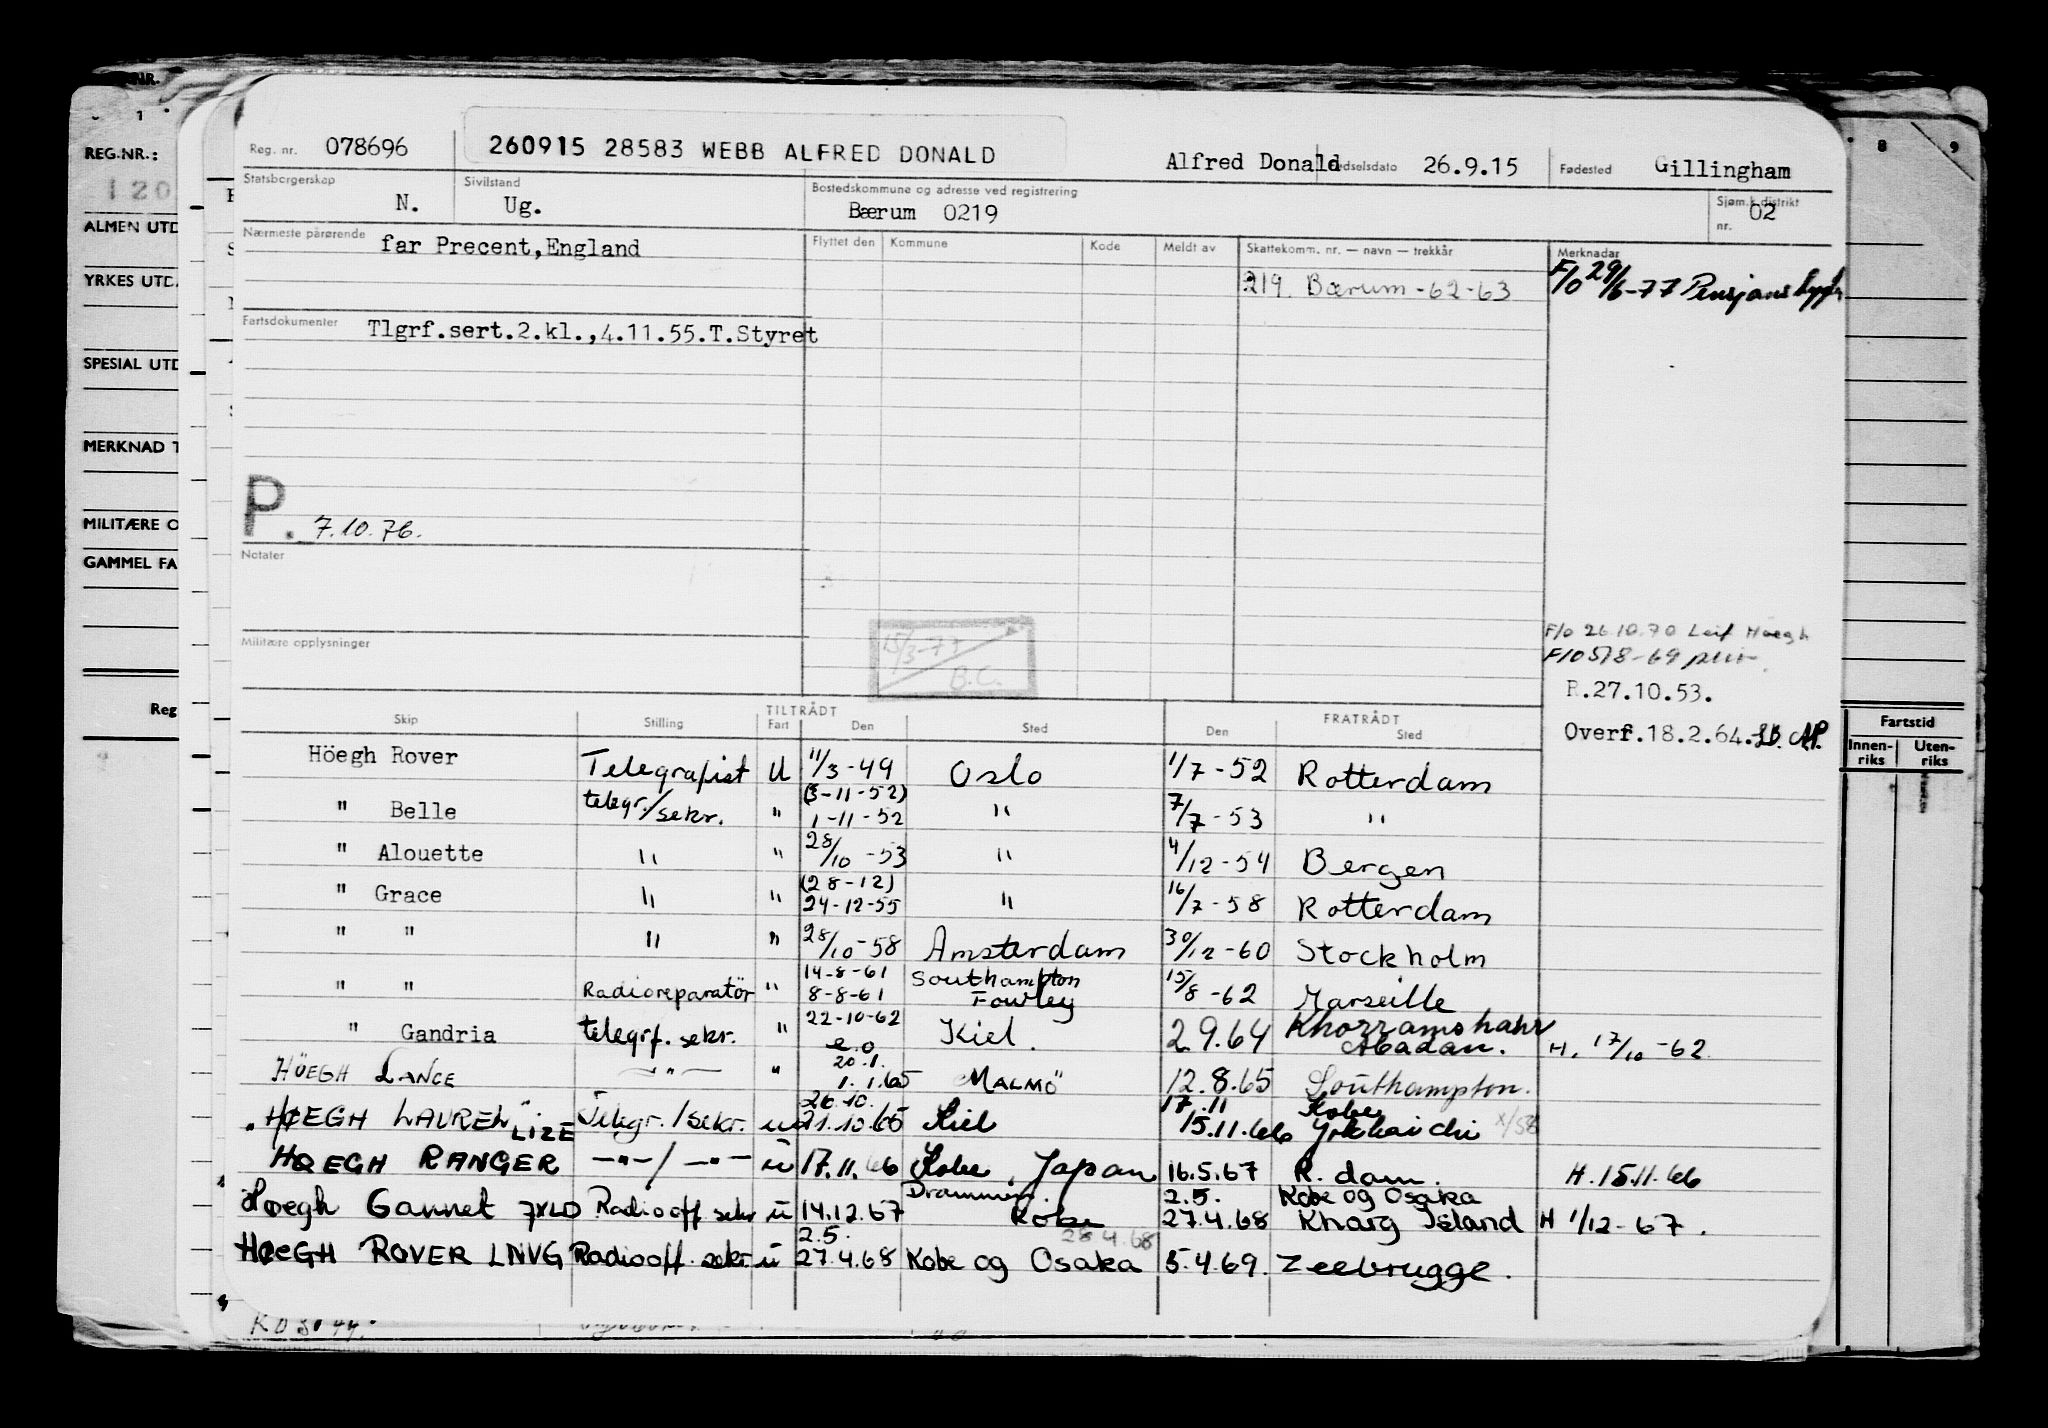 NR.
1
8 9
REG.NR.:
120
ALMEN UTD
YRKES UTD
SPESIAL UTD
MERKNAD T
MILITÆRE O
GAMMEL FA
Reg
Fartstid
Innen-riks Uten-riks
Reg. nr. 078696 260915 28583 WEBB ALFRED DONALD Alfred Donald Fødselsdato 26.9.15 Fødested Gillingham
Statsborgerskap N. Sivilstand Ug. Bostedskommune og adresse ved registrering Bærum 0219 Sjøm.k.distrikt nr. 02
Nærmeste pårørende far Precent,England Flyttet den Kommune Kode Meldt av Skattekomm. nr. — navn — trekkår Merknadar
219. Bærum -62-63 F/o 29/6-77 Pensjons
Fartsdokumenter Tlgrf.sert.2.kl.,4.11.55.T.Styret
P. 7.10.76.
Notater
Militære opplysninger
15/3-77
B.C.
F/o 26.10.70 Leif Höegh
F/o 5/8-69
R.27.10.53.
Overf.18.2.64.
Skip Stilling TILTRÅDT Fart Den Sted FRATRÅDT Den Sted
Höegh Rover Telegrafist U 11/3-49 Oslo 1/7-52 Rotterdam
" Belle telegr./sekr. " (3-11-52) 1-11-52 " 7/7-53 "
" Alouette " " 28/10-53 " 4/12-54 Bergen
" Grace " " (28-12) 24-12-55 " 16/7-58 Rotterdam
" " " " 28/10-58 Amsterdam 30/12-60 Stockholm
" " Radioreparatör " 14-8-61 8-8-61 Southampton Fowley 15/8-62 Marseille
" Gandria telegrf. sekr. " 22-10-62 e.o Kiel. 2.9.64 Khorramshahr Abadan. H. 17/10-62
HÖEGH LANCE — " — " 20.1. 1.1.65 MALMÖ 12.8.65 Southampton.
HØEGH LAUREL LIZE Telegr./sekr. u 26.10. 21.10.65 Kiel 17.11 15.11.66 Kobe Yokkaichi
HØEGH RANGER —"—/—"— u 17.11.66 Kobe, Japan 16.5.67 R.dam. H. 15.11.66
Høegh Gannet JXLD Radiooff sekr u 14.12.67 Drammen. Kobe 2.5. 27.4.68 Kobe og Osaka Kharg Island H 1/12-67.
28.4.68
HØEGH ROVER LNVG Radiooff. sekr u 2.5. 27.4.68 Kobe og Osaka 5.4.69. Zeebrugge.